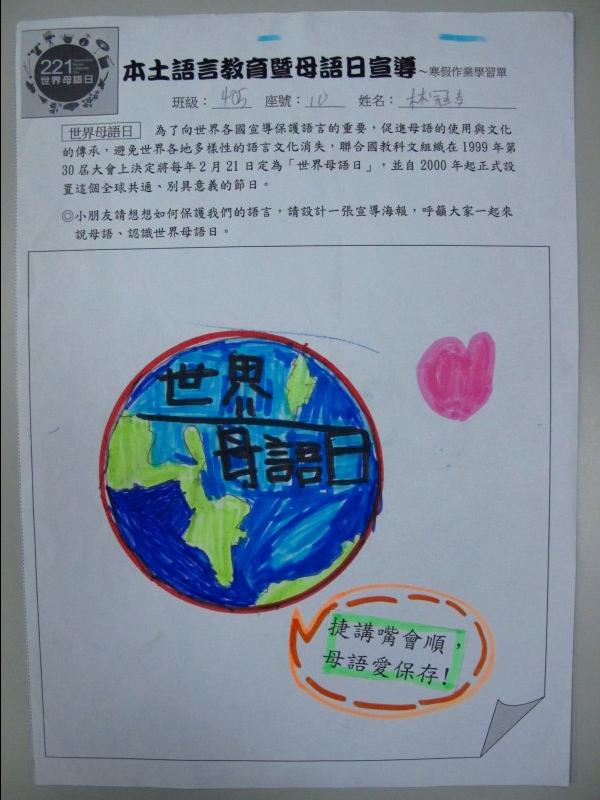 221
世界母語日
本土語言教育暨母語日宣導～寒假作業學習單
班級：405 座號：10 姓名：林冠
世界母語日 為了向世界各國宣導保護語言的重要，促進母語的使用與文化
的傳承，避免世界各地多樣性的語言文化消失，聯合國教科文組織在 1999 年第
30 屆大會上決定將每年 2 月 21 日定為「世界母語日」，並自 2000 年起正式設
置這個全球共通、別具意義的節日。
◎小朋友請想想如何保護我們的語言，請設計一張宣導海報，呼籲大家一起來
說母語、認識世界母語日。
世界
母語日
捷講嘴會順，
母語愛保存!